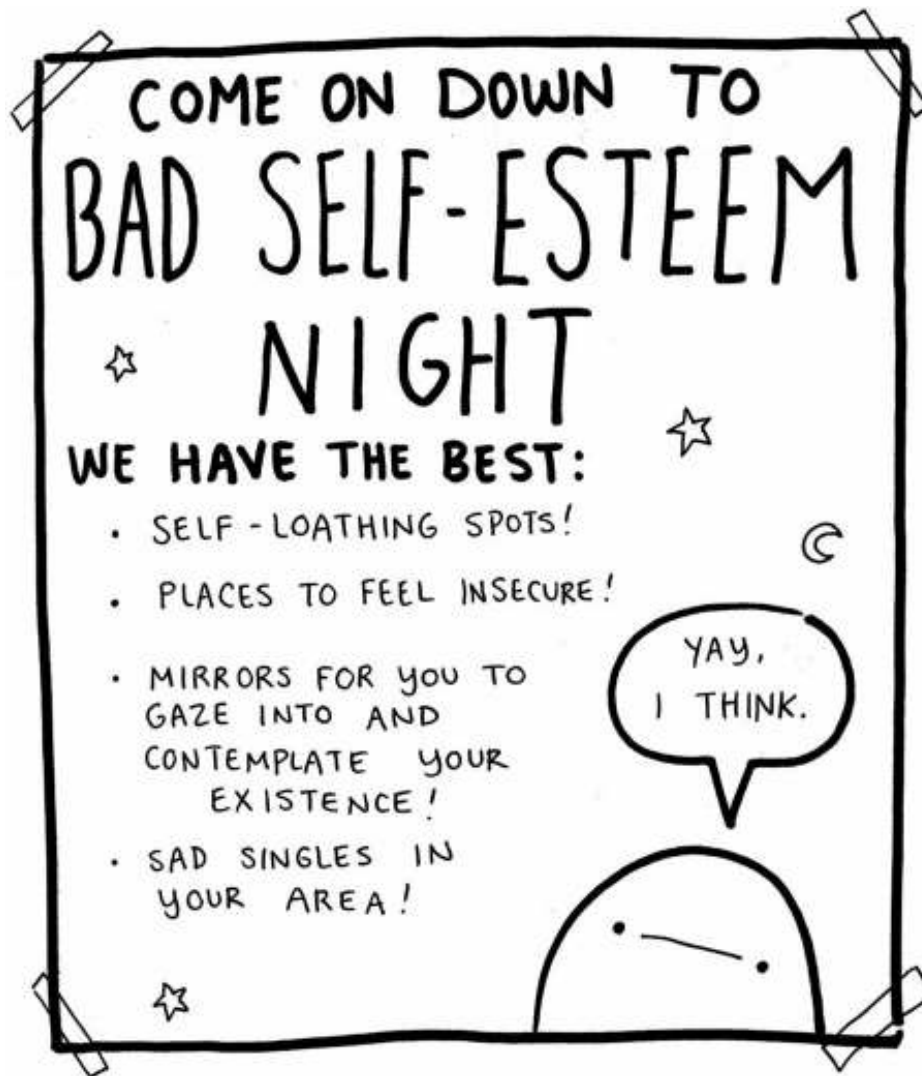 COME ON DOWN TO
BAD SELF-ESTEEM
NIGHT
WE HAVE THE BEST:
· SELF-LOATHING SPOTS!
· PLACES TO FEEL INSECURE!
· MIRRORS FOR YOU TO
GAZE INTO AND
CONTEMPLATE YOUR
EXISTENCE!
· SAD SINGLES IN
YOUR AREA!
YAY,
I THINK.